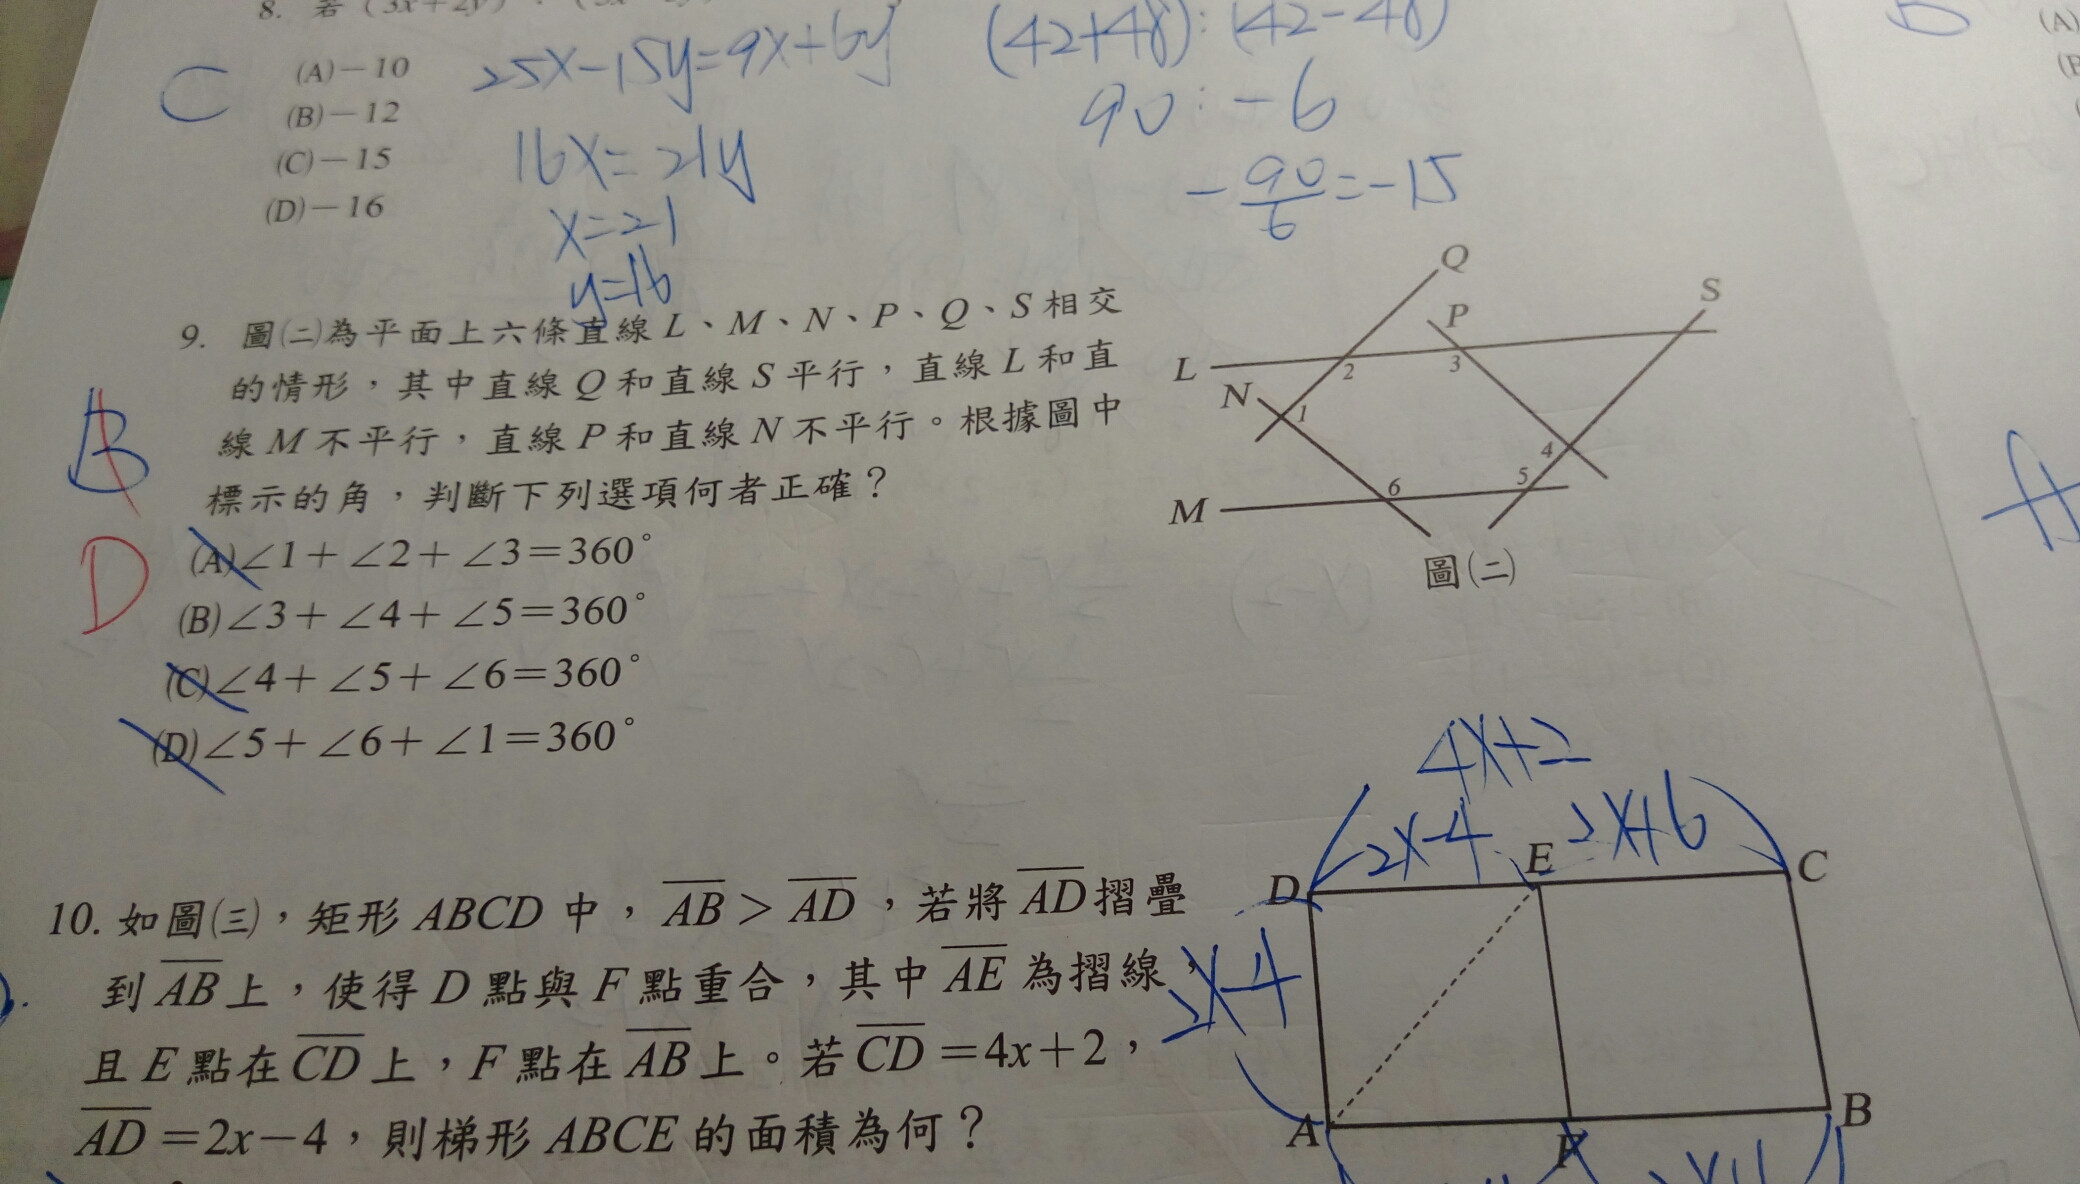 8. 若 (3x+2y) : (
(A)－10
(B)－12
(C)－15
(D)－16
C
25x-15y=9x+6y
16x=21y
x=21
y=16
(42+48):(42-48)
90:-6
-90/6=-15
9. 圖(二)為平面上六條直線L、M、N、P、Q、S相交
的情形，其中直線Q和直線S平行，直線L和直
線M不平行，直線P和直線N不平行。根據圖中
標示的角，判斷下列選項何者正確？
(A)∠1＋∠2＋∠3＝360°
(B)∠3＋∠4＋∠5＝360°
(C)∠4＋∠5＋∠6＝360°
(D)∠5＋∠6＋∠1＝360°
B
D
Q
S
P
L
2
3
N
1
4
5
6
M
圖(二)
A
(A)
10. 如圖(三)，矩形ABCD中，AB＞AD，若將AD摺疊
到AB上，使得D點與F點重合，其中AE為摺線，
且E點在CD上，F點在AB上。若CD＝4x＋2，
AD＝2x－4，則梯形ABCE的面積為何？
4x+2
2x-4
2x+6
D
E
C
2x-4
A
F
B